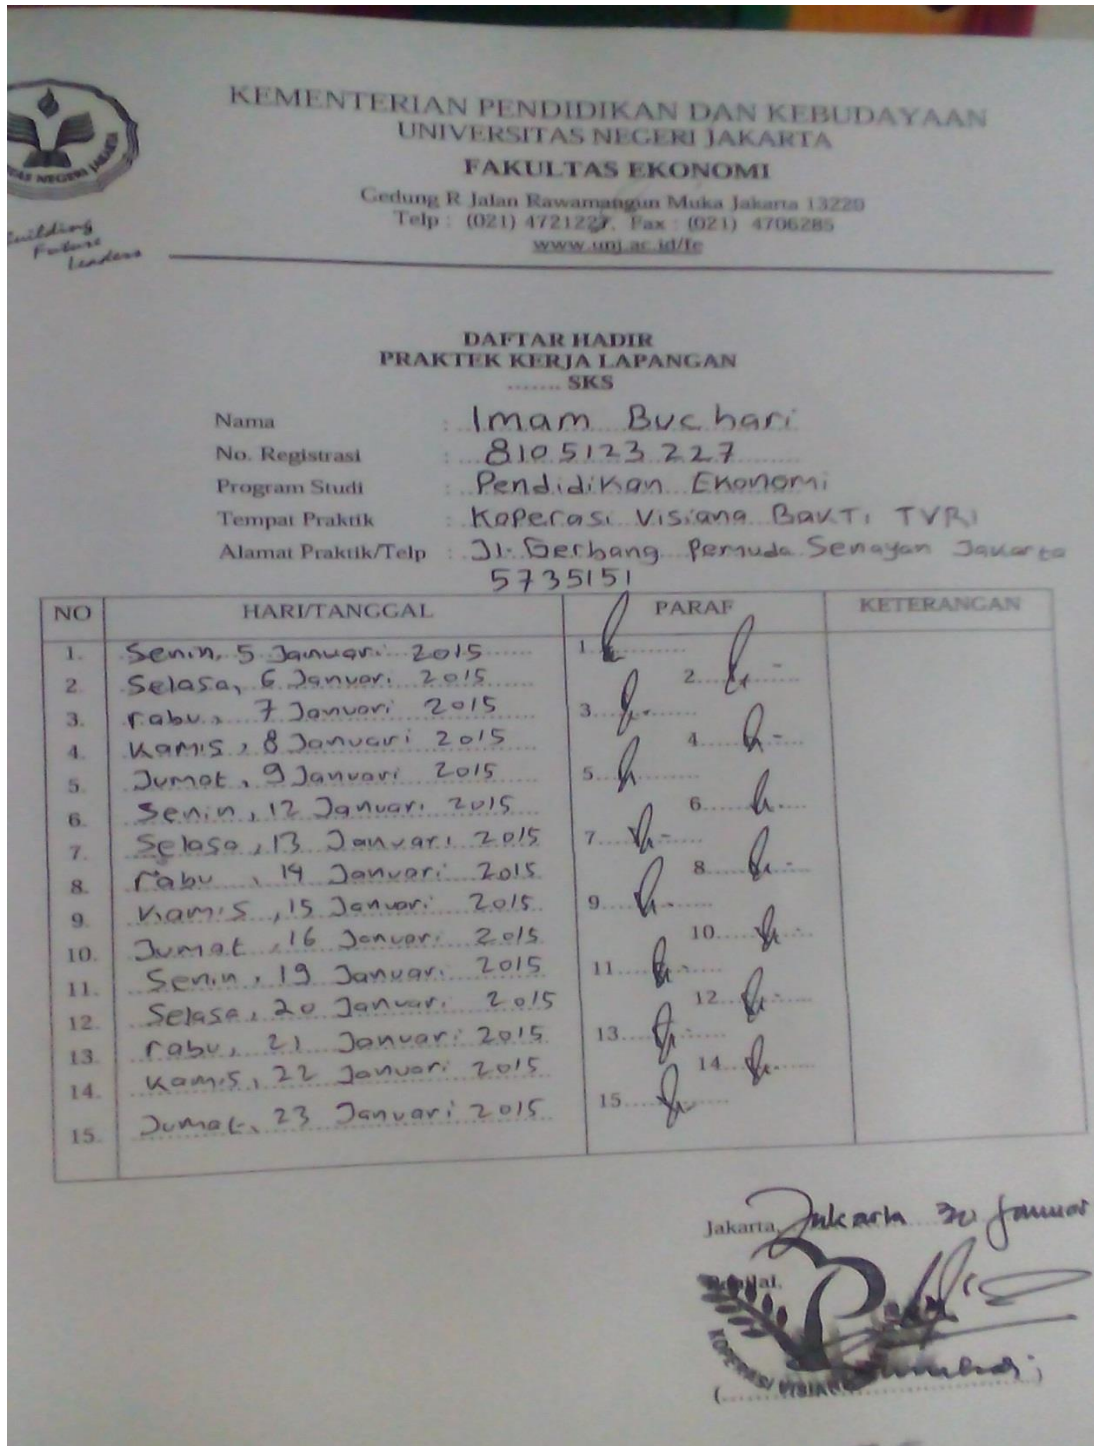 KEMENTERIAN PENDIDIKAN DAN KEBUDAYAAN
UNIVERSITAS NEGERI JAKARTA
FAKULTAS EKONOMI
Gedung R Jalan Rawamangun Muka Jakarta 13220
Telp : (021) 4721227, Fax : (021) 4706285
www.unj.ac.id/fe
AS NEGERI JAKARTA
Building
Future
Leaders
DAFTAR HADIR
PRAKTEK KERJA LAPANGAN
....... SKS
Nama : Imam Buchari
No. Registrasi : 8105123227
Program Studi : Pendidikan Ekonomi
Tempat Praktik : Koperasi Visiana Bakti TVRI
Alamat Praktik/Telp : Jl. Gerbang Pemuda Senayan Jakarta
5735151
NO HARI/TANGGAL PARAF KETERANGAN
1. Senin, 5 Januari 2015 1.
2. Selasa, 6 Januari 2015 2.
3. rabu, 7 Januari 2015 3.
4. Kamis, 8 Januari 2015 4.
5. Jumat, 9 Januari 2015 5.
6. Senin, 12 Januari 2015 6.
7. Selasa, 13 Januari 2015 7.
8. rabu, 14 Januari 2015 8.
9. Kamis, 15 Januari 2015 9.
10. Jumat, 16 Januari 2015 10.
11. Senin, 19 Januari 2015 11.
12. Selasa, 20 Januari 2015 12.
13. rabu, 21 Januari 2015 13.
14. Kamis, 22 Januari 2015 14.
15. Jumat, 23 Januari 2015 15.
Jakarta, Jakarta 30 Januar
KOPERASI VISIANA